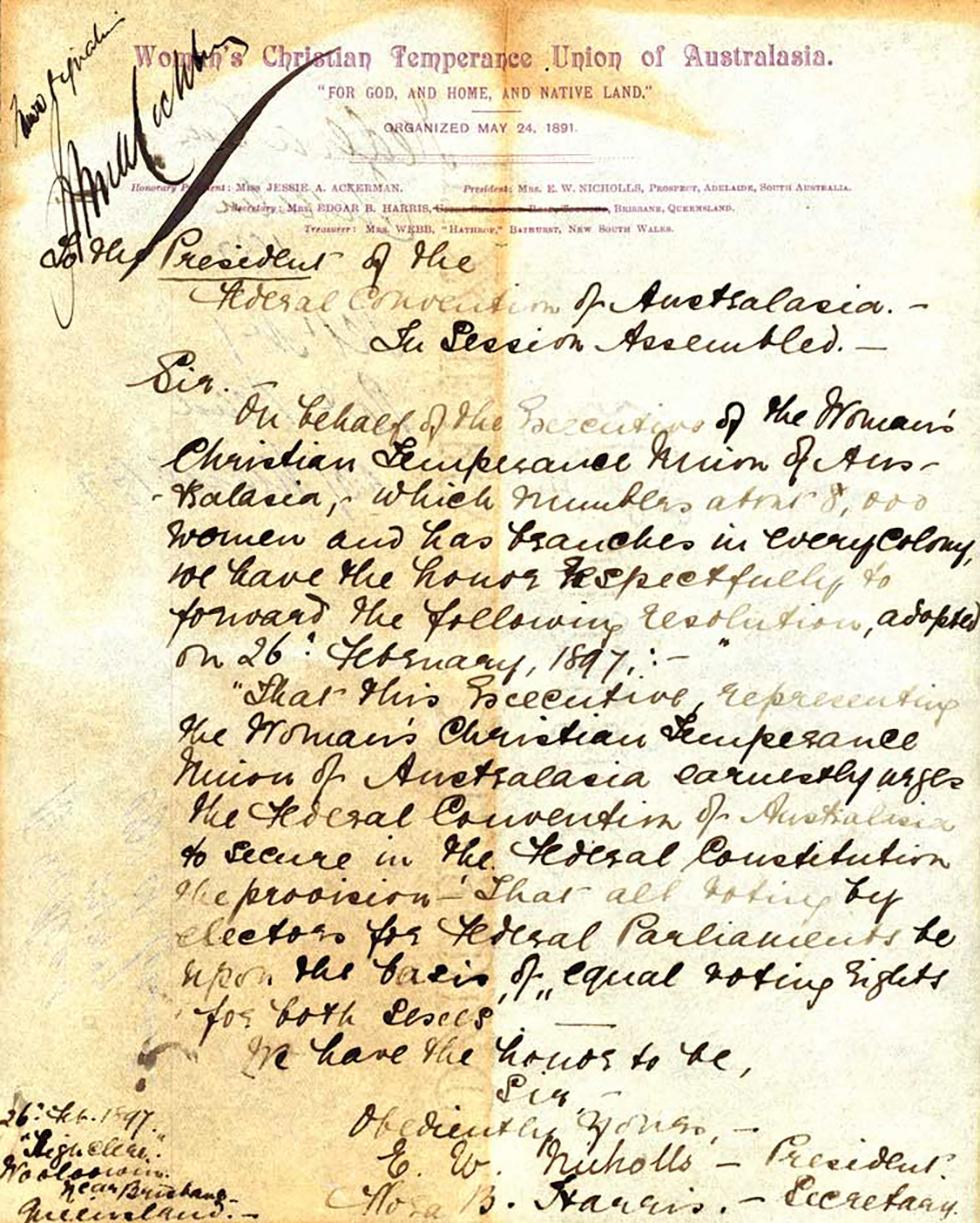 Two signatures
Woman's Christian Temperance Union of Australasia.
"FOR GOD, AND HOME, AND NATIVE LAND."
ORGANIZED MAY 24, 1891.
Honorary President: Miss JESSIE A. ACKERMAN. President: Mrs. E. W. NICHOLLS, PROSPECT, ADELAIDE, SOUTH AUSTRALIA.
Secretary: Mrs. EDGAR B. HARRIS, BRISBANE, QUEENSLAND.
Treasurer: Mrs. WEBB, "HATHROP," BATHURST, NEW SOUTH WALES.
To the President of the
Federal Convention of Australasia. -
In Session Assembled. -
Sir. -
On behalf of the Executive of the Woman's
Christian Temperance Union of Aus-
-tralasia, - which numbers about 8,000
women and has branches in every Colony,
we have the honor respectfully to
forward the following resolution, adopted
on 26: February, 1897,:- "
"That this Executive, representing
the Woman's Christian Temperance
Union of Australasia earnestly urges
the Federal Convention of Australasia
to secure in the Federal Constitution
the provision - 'That all voting by
electors for Federal Parliaments be
upon the basis of equal voting rights
for both sexes," -
We have the honor to be,
Sir, -
Obediently Yours, -
E. W. Nicholls - President.
Nora B. Harris. - Secretary.
26: Feb. 1897.
"Highclere."
Wooloowin.
Near Brisbane -
Queensland. -